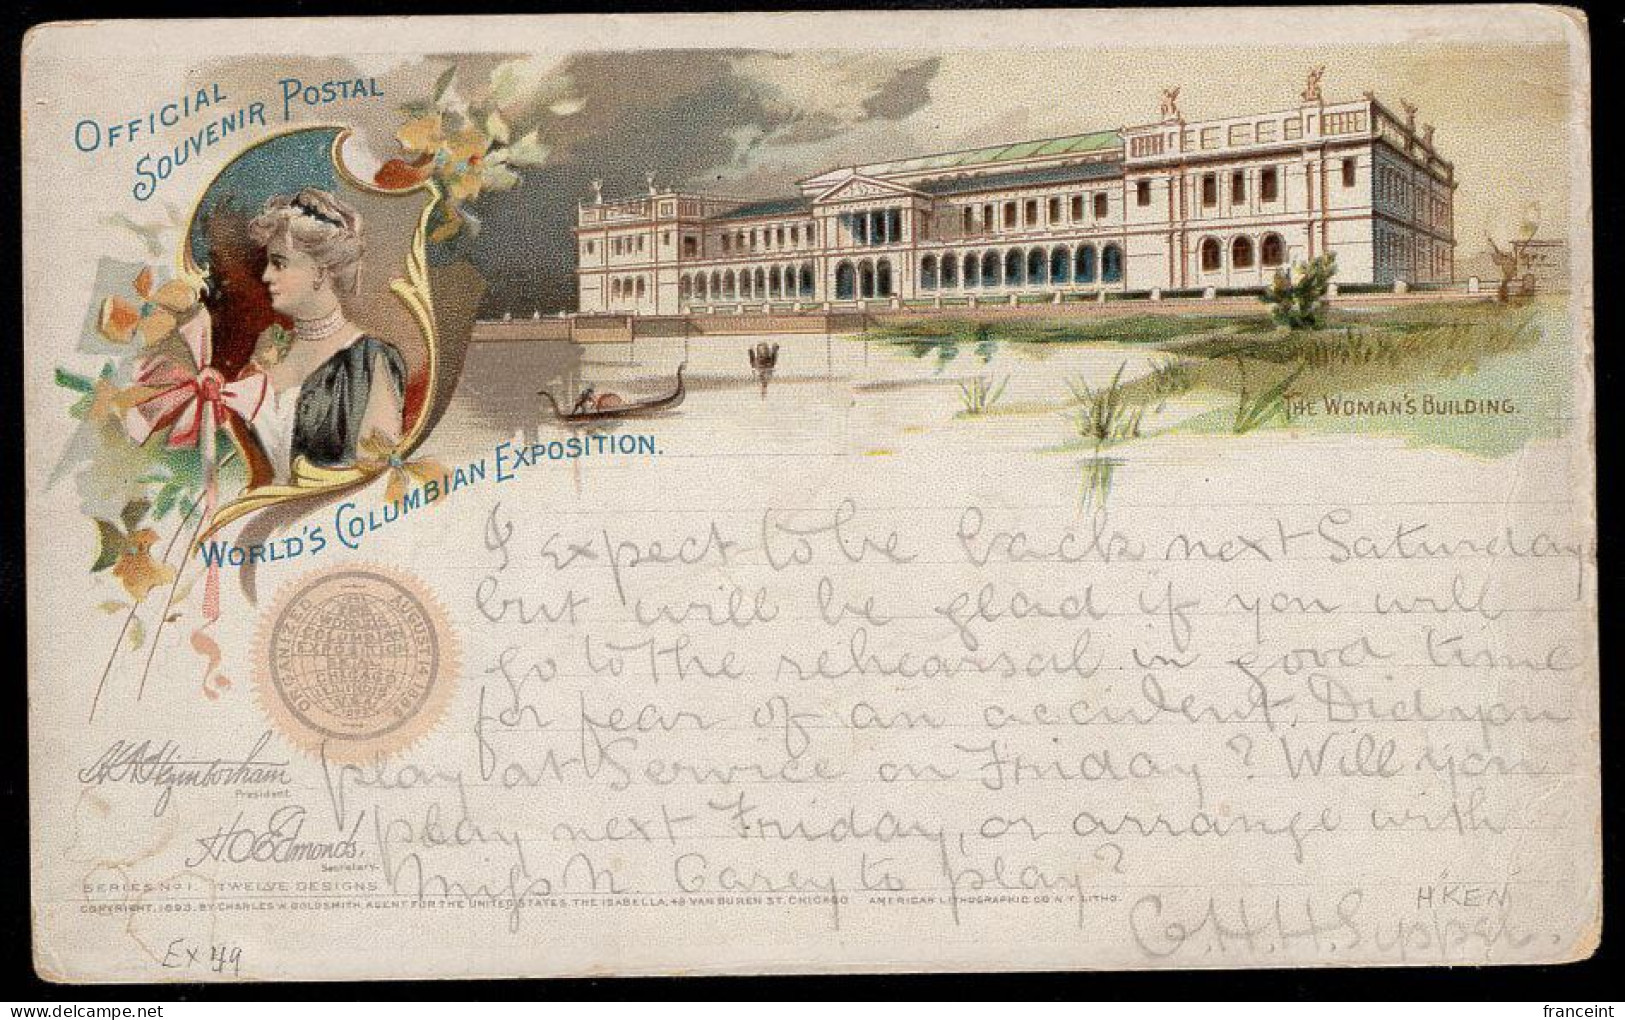 OFFICIAL
SOUVENIR POSTAL
WORLD'S COLUMBIAN EXPOSITION.
THE WOMAN'S BUILDING.
I expect to be back next Saturday
but will be glad if you will
go to the rehearsal in good time
for fear of an accident. Did you
play at Service on Friday? Will you
play next Friday, or arrange with
Miss N. Carey to play?
C.H.H. Sypper.
ORGANIZED AUGUST 14 1885
THE
WORLD'S
COLUMBIAN
EXPOSITION
SEAL
CHICAGO
ILLINOIS
USA
President.
H O Edmonds.
Secretary.
SERIES No 1. TWELVE DESIGNS
COPYRIGHT, 1893, BY CHARLES W. GOLDSMITH, AGENT FOR THE UNITED STATES, THE ISABELLA, 48 VAN BUREN ST. CHICAGO AMERICAN LITHOGRAPHIC CO N.Y. LITHO.
H"KEN"
Ex 49
franceint